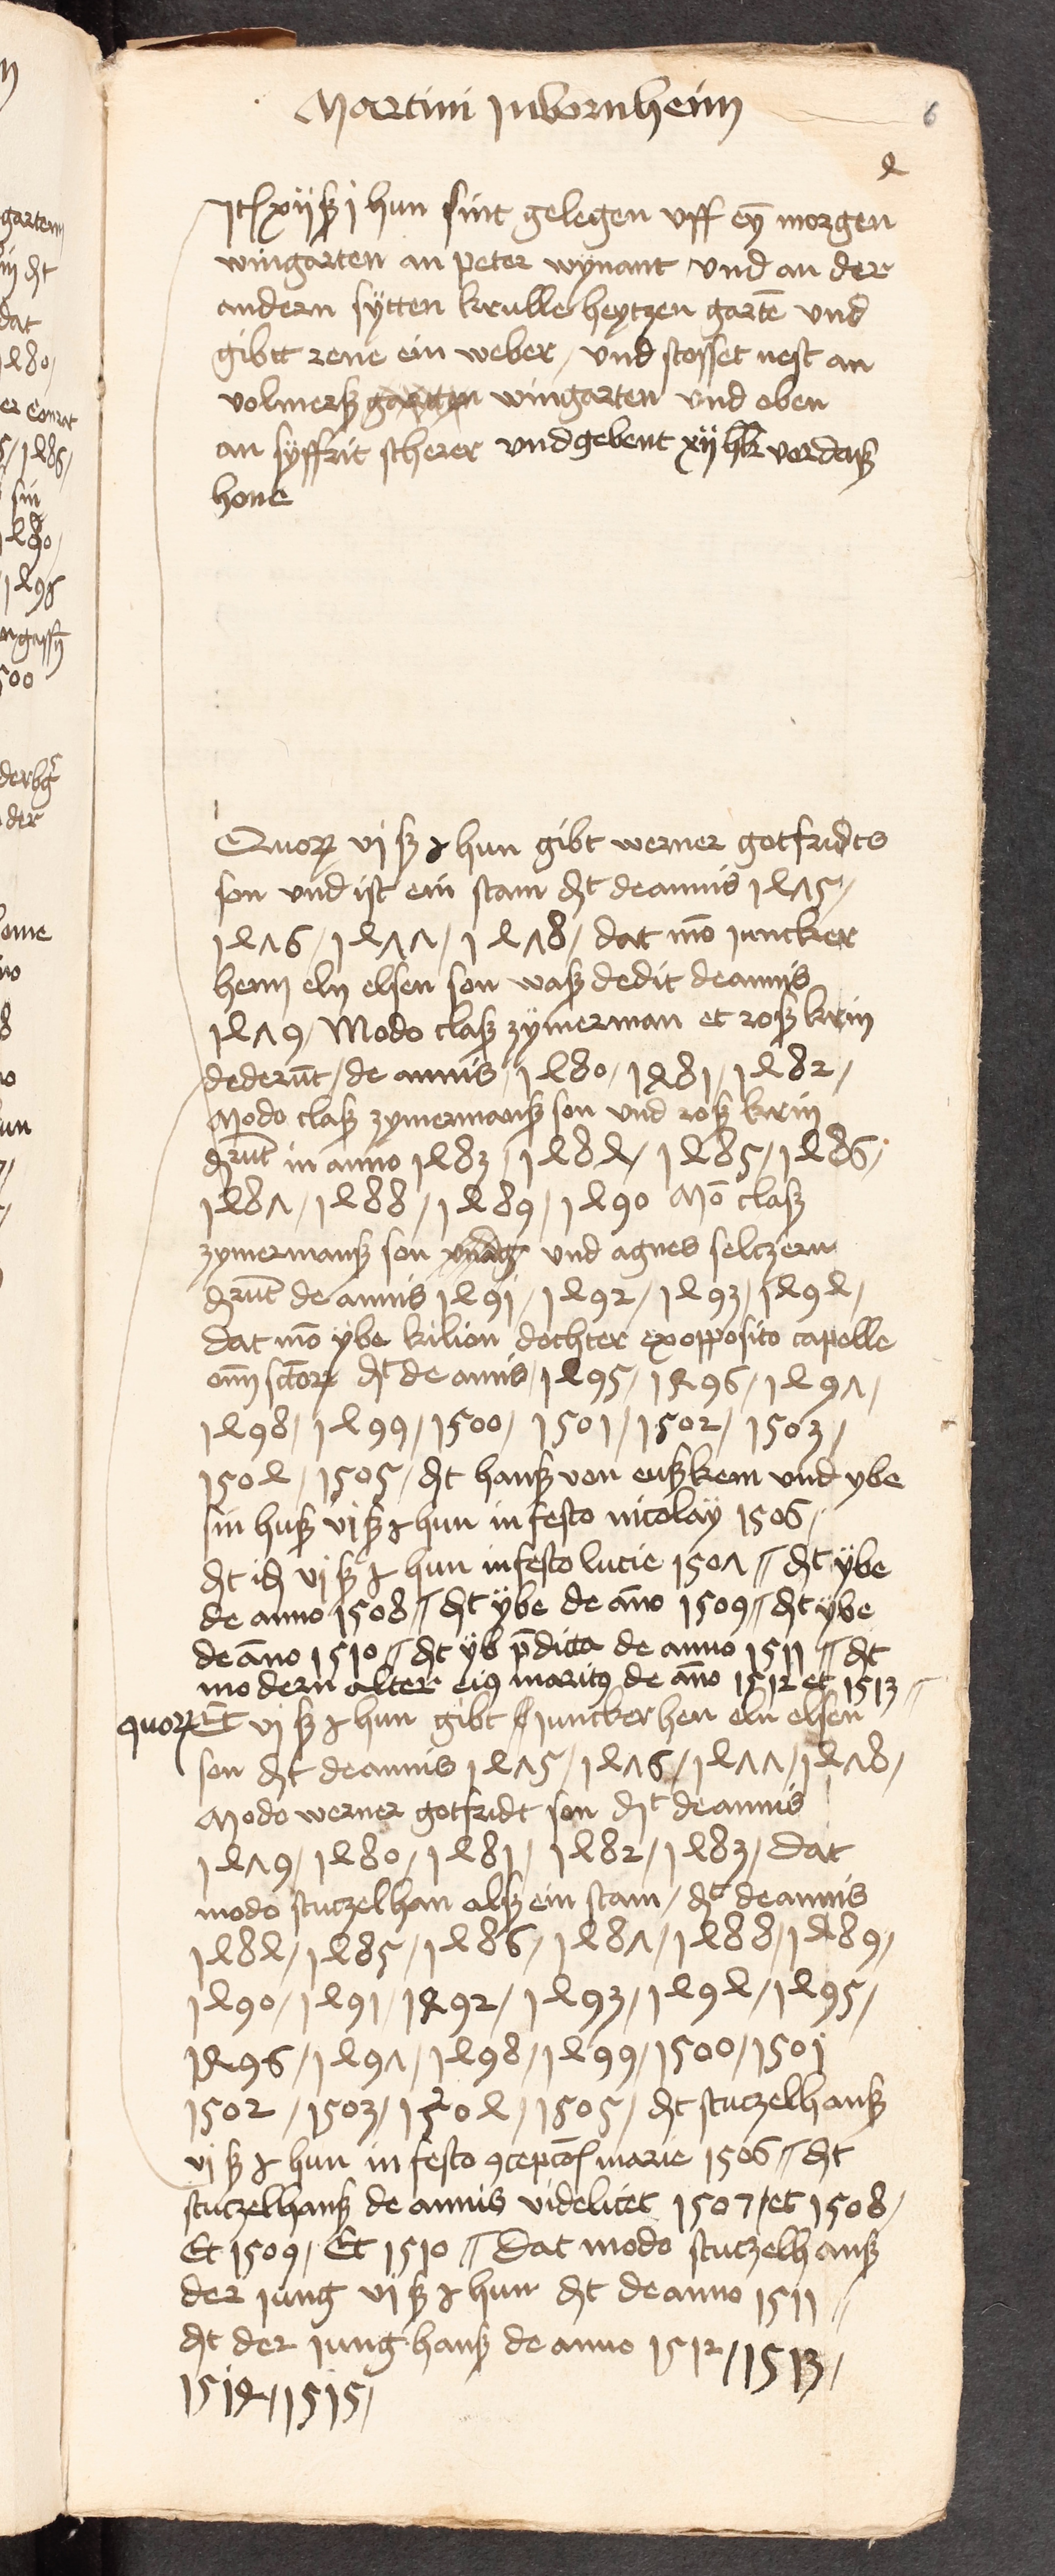 Martini jnbornheim
6
4
Jt xij ß j hun sint gelegen vff ey̅ morgen
wingarten an peter wynant vnd an der
andern sÿtten krulle heytzen garte̅ vnd
gibtt rene ein weber / vnd stosset nest an
volmerß garten wingarten vnd oben
an syffrit scherer vnd gebent xij hlr vor daß
hone
Quor vj ß ɉ hun gibt werner gotfridts
son vnd ist ein stam dt de annis 1475 /
1476 / 1477 / 1478 / dat mo̅ juncker
hen eln elsen son waß dedit de annis
1479 / Modo claß zÿmerman et roß krin
dederu̅t / de annis / 1480 / 1481 / 1482 /
Modo claß zymermanß son vnd roß krin
dru̅t in anno 1483 / 1484 / 1485 / 1486 /
1487 / 1488 / 1489 / 1490 Mo̅ claß
zymermanß son und agnes seltzern
dru̅t de annis 1491 / 1492 / 1493 / 1494 /
dat mo̅ ÿbe kilion dochter ex opposito capelle
om̅ sctor dt de annis / 1495 / 1496 / 1497 /
1498 / 1499 / 1500 / 1501 / 1502 / 1503 /
1504 / 1505 / dt hanß von enßkem vnd ybe
sin huß vj ß ɉ hun in festo nicolaÿ 1506 /
dt id vj ß ɉ hun in festo lucie 1507 // dt ÿbe
de anno 1508 // dt ÿbe de an̅o 1509 // dt ÿbe
de an̅o 1510 // dt ÿb p̅dicta de anno 1511 // dt
modern alter eiꝰ maritꝰ de an̅o 1512 et 1513 //
quor Et vj ß ɉ hun gibt juncker hen eln elsen
son dt de annis 1475 / 1476 / 1477 / 1478 /
Modo werner gotfridt son dt de annis
1479 / 1480 / 1481 / 1482 / 1483 / dat
modo stutzelhan alß ein stam / dt de annis
1484 / 1485 / 1486 / 1487 / 1488 / 1489 /
1490 / 1491 / 1492 / 1493 / 1494 / 1495 /
1496 / 1497 / 1498 / 1499 / 1500 / 1501
1502 / 1503 / 1504 / 1505 / dt stutzelhanß
vj ß ɉ hun in festo ꝯcepcōs marie 1506 // dt
stutzelhanß de annis videlicet 1507 / et 1508 /
Et 1509 / Et 1510 // Dat modo stutzelhanß
der jung vj ß ɉ hun dt de anno 1511 //
dt der jung hanß de anno 1512 / 1513 /
1514 / 1515 /